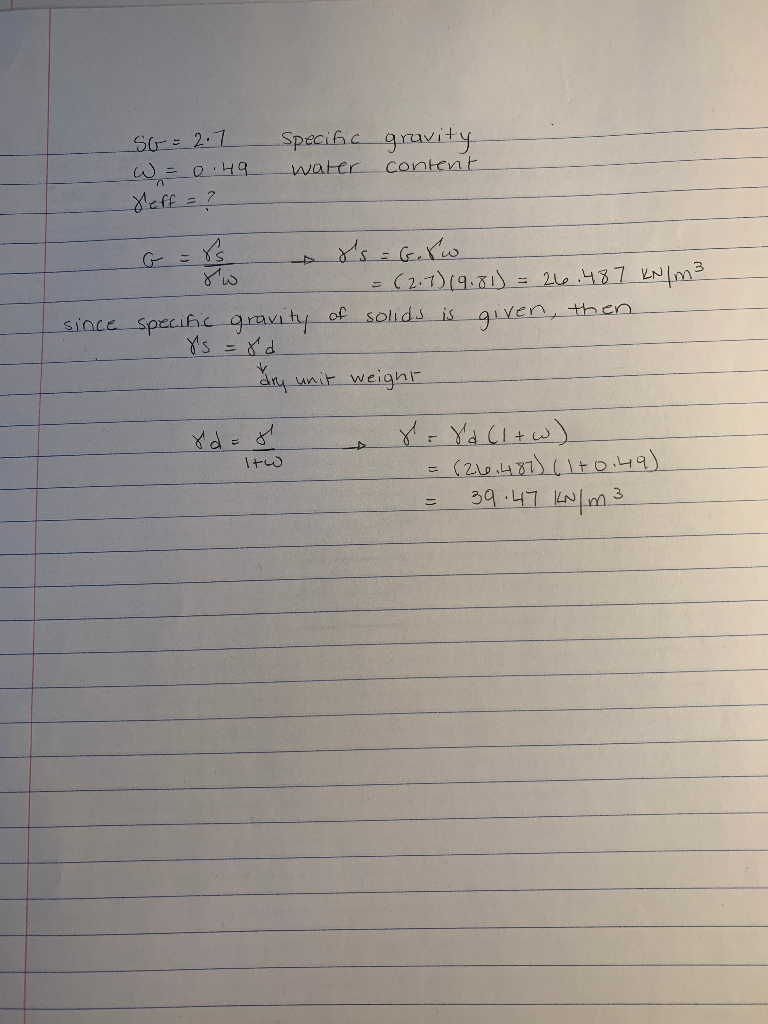 SG = 2.7 Specific gravity
ωn = 0.49 water content
γeff = ?
G = γs/γw → γs = G.γw
= (2.7)(9.81) = 26.487 KN/m³
since specific gravity of solids is given, then
γs = γd
dry unit weight
γd = γ/1+ω → γ = γd (1+ω)
= (26.487)(1+0.49)
= 39.47 KN/m³